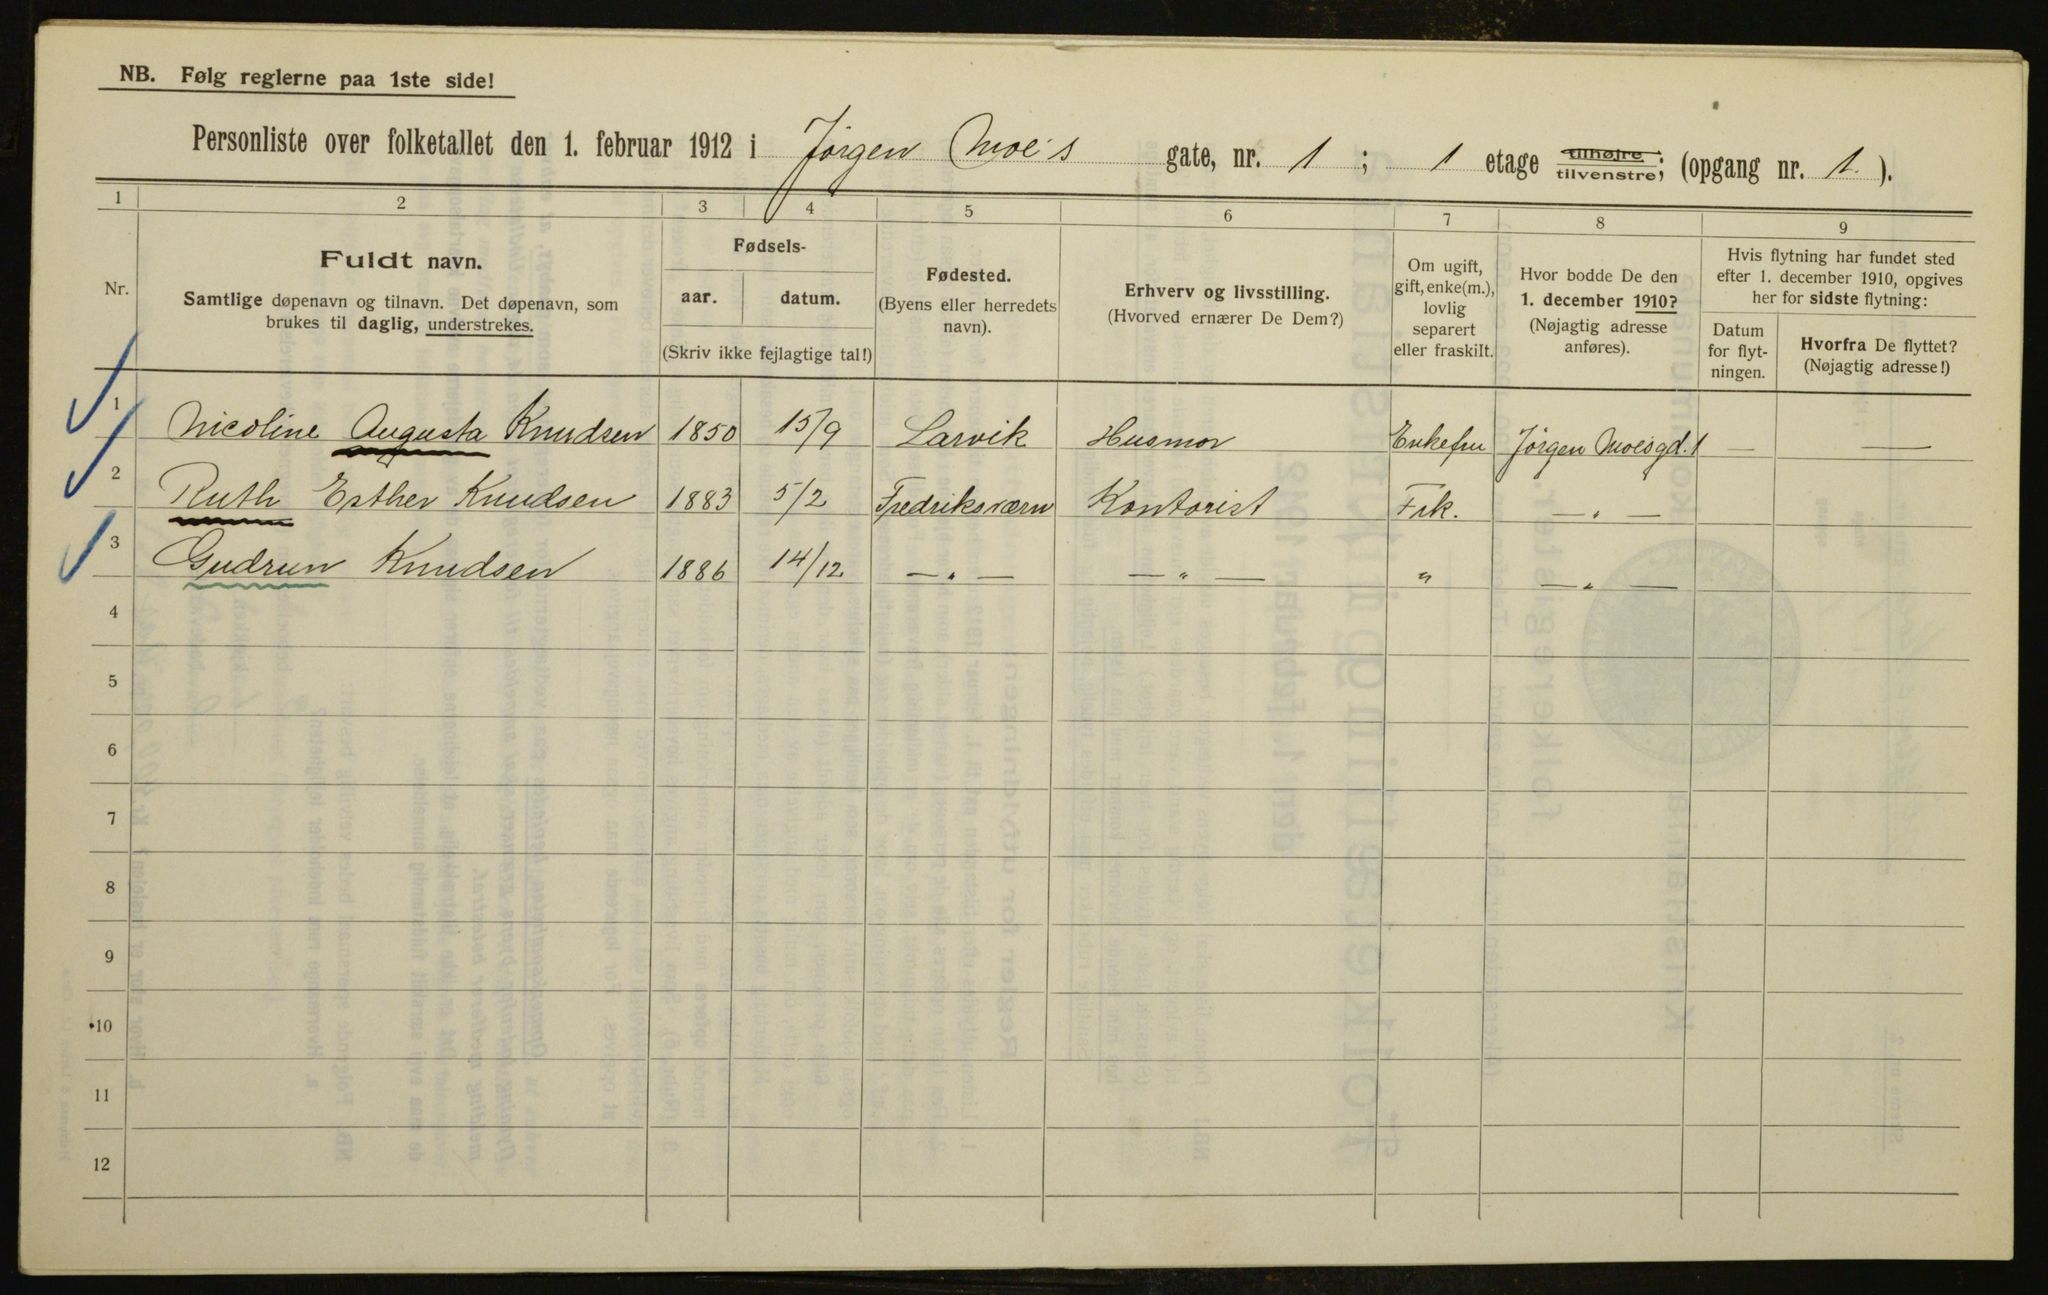 NB. Følg reglerne paa 1ste side!
Personliste over folketallet den 1. februar 1912 i Jørgen Moe's gate, nr. 1 ; 1 etage tilhøjre/tilvenstre; (opgang nr. 1. ).
1 2 3 4 5 6 7 8 9
Nr.
Fuldt navn.
Samtlige døpenavn og tilnavn. Det døpenavn, som
brukes til daglig, understrekes.
Fødsels-
aar. datum.
(Skriv ikke fejlagtige tal!)
Fødested.
(Byens eller herredets
navn).
Erhverv og livsstilling.
(Hvorved ernærer De Dem?)
Om ugift,
gift, enke(m.),
lovlig
separert
eller fraskilt.
Hvor bodde De den
1. december 1910?
(Nøjagtig adresse
anføres).
Hvis flytning har fundet sted
efter 1. december 1910, opgives
her for sidste flytning:
Datum
for flyt-
ningen.
Hvorfra De flyttet?
(Nøjagtig adresse!)
1 Nicoline Augusta Knudsen 1850 15/9 Larvik Husmor Enkefru Jørgen Moesgd. 1 — —
2 Ruth Esther Knudsen 1883 5/2 Fredriksværn Kontorist Frk. — " —
3 Gudrun Knudsen 1886 14/12 — " — — " — " — " —
4
5
6
7
8
9
10
11
12